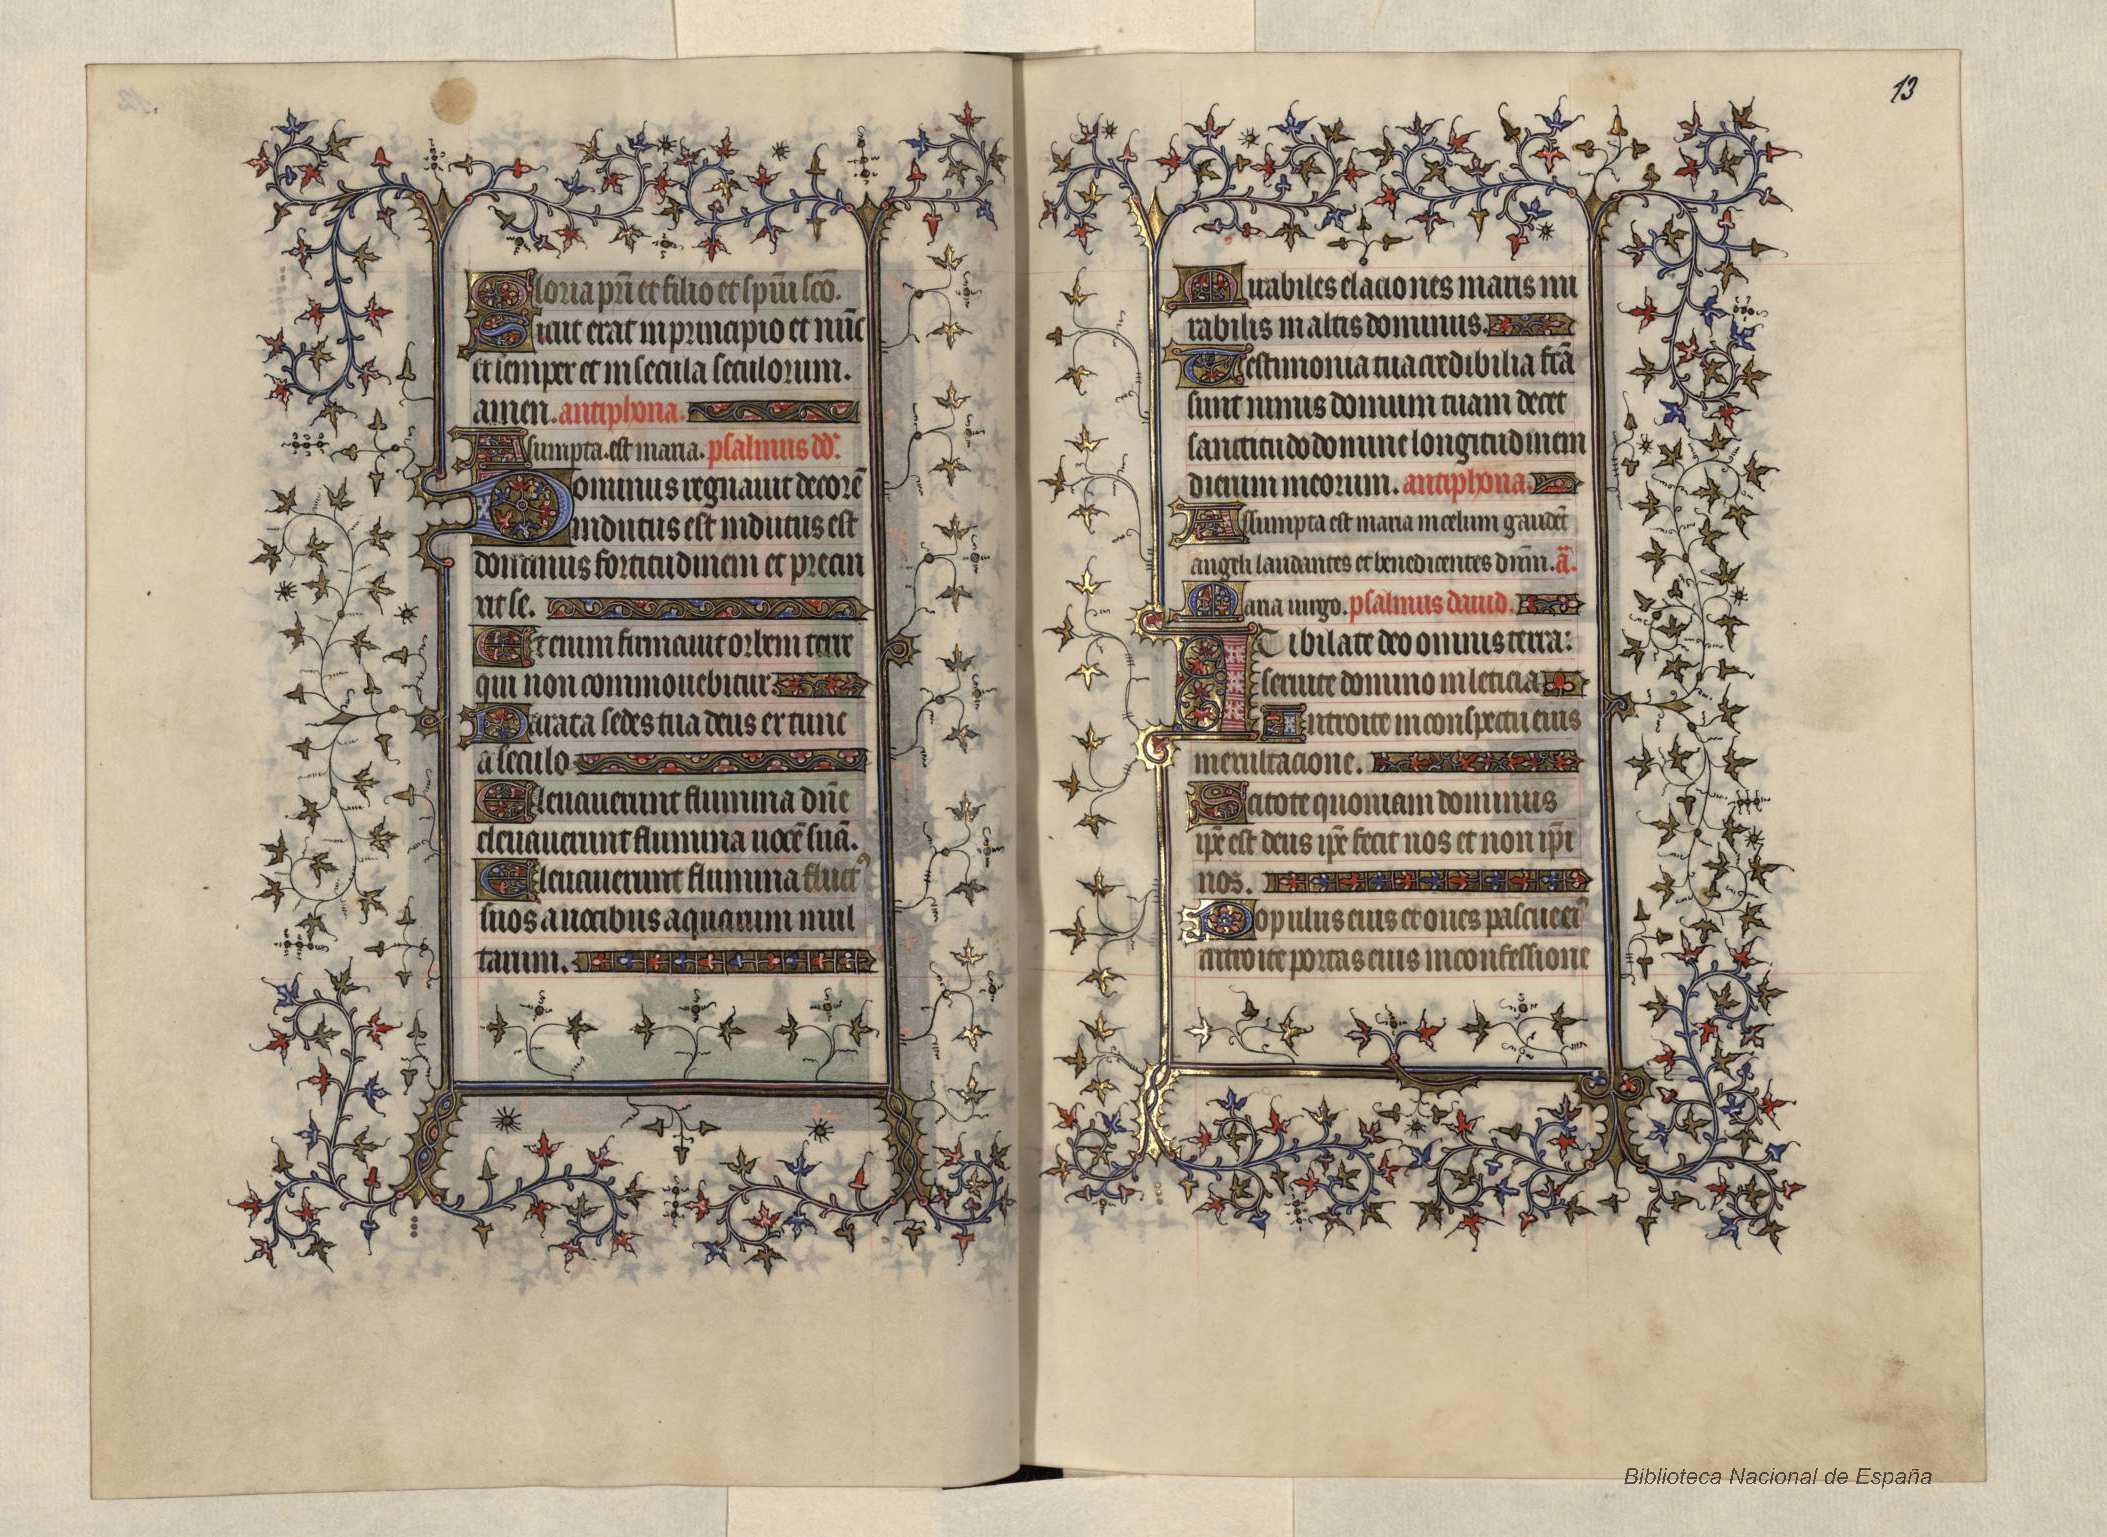 Gloria pr̄i et filio et sp̄iui sc̄o.
Sicut erat in principio et nūc
et semper et in secula seculorum.
amen. antiphona.
Asumpta. est maria. psalmus dd̄:
Dominus regnauit decorē
indutus est indutus est
dominus fortitudinem et precin
xit se.
Etenim firmauit orbem terre
qui non commouebitur
Parata sedes tua deus ex tunc
a seculo
Eleuauerunt flumina dn̄e
eleuauerunt flumina uocē suā.
Eleuauerunt flumina fluctꝰ
suos a uocibus aquarum mul
tarum.
13
Mirabiles elaciones maris mi
rabilis in altis dominus.
Testimonia tua credibilia fc̄ā
sunt nimis domum tuam decet
sanctitudo domine longitudinem
dierum meorum. antiphona.
Assumpta est maria in celum gaudēt
angeli laudantes et benedicentes dn̄m. ā.
Maria uirgo. psalmus dauid.
Iubilate deo omnis terra:
seruite domino in leticia
Introite in conspectu eius
in exultacione.
Scitote quoniam dominus
ip̄e est deus ip̄e fecit nos et non ip̄i
nos.
Populus eius et oues pascue eiꝰ
introite portas eius in confessione
Biblioteca Nacional de España